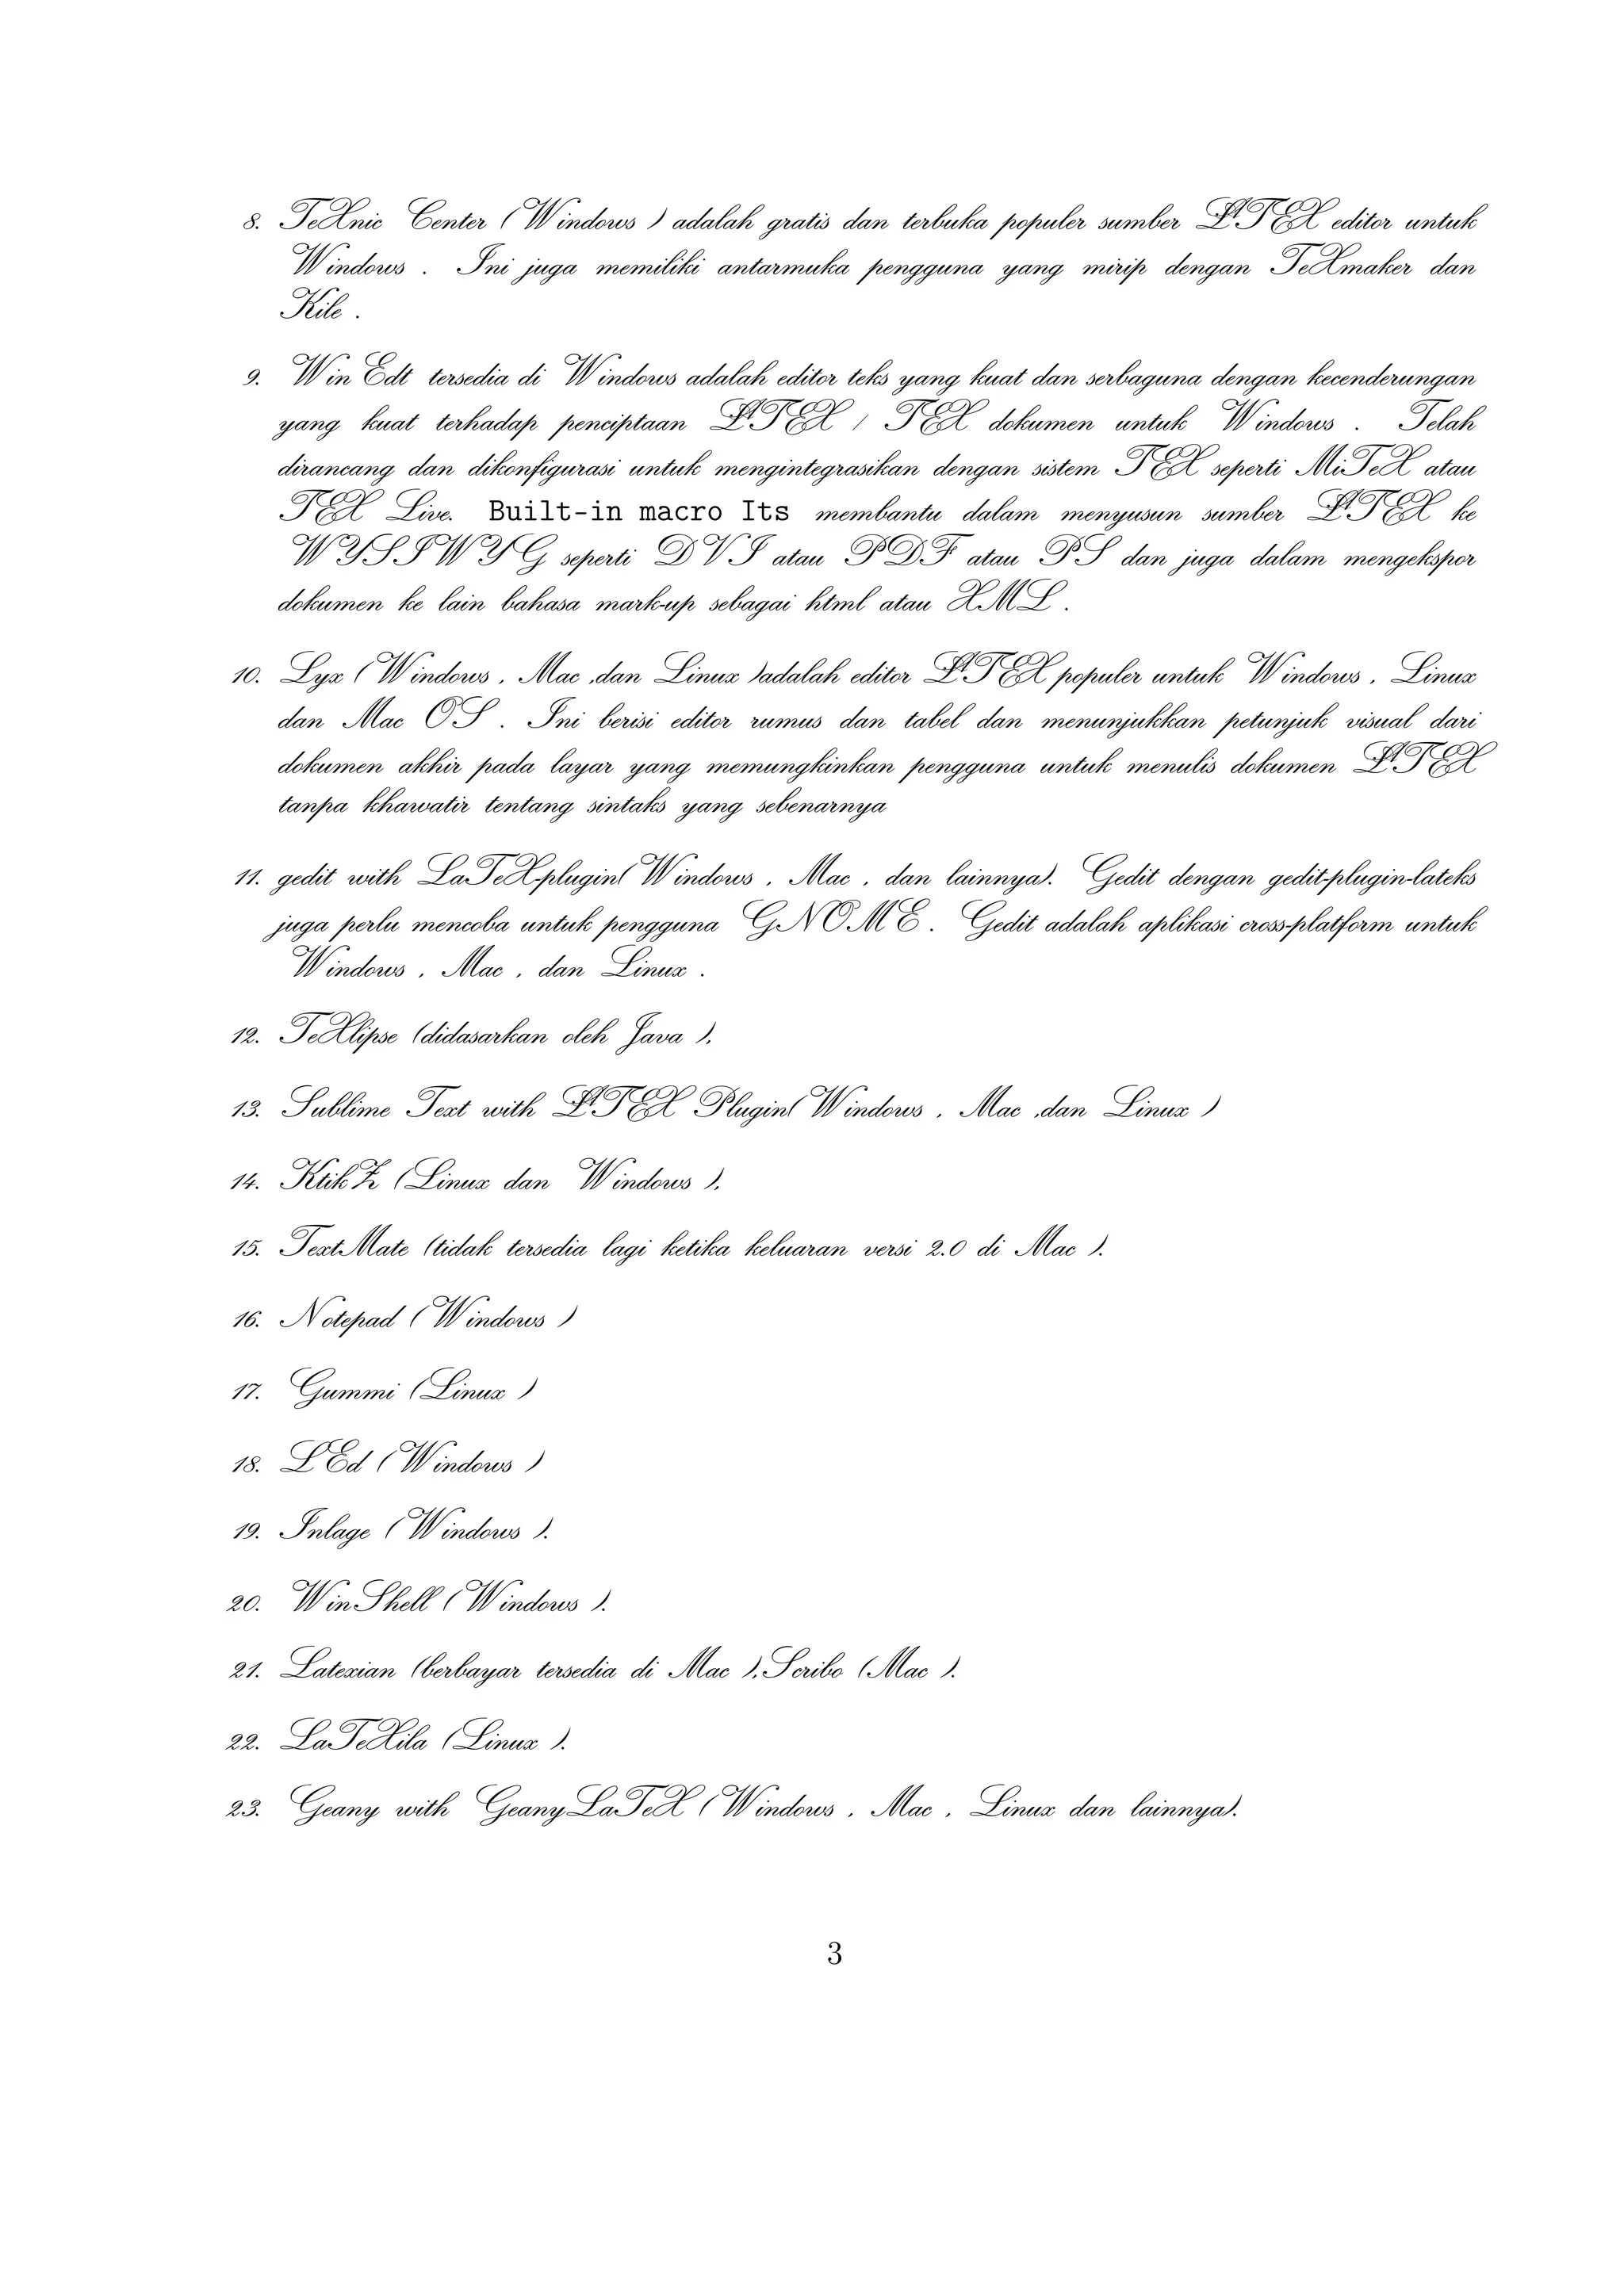 8. TeXnic Center (Windows ) adalah gratis dan terbuka populer sumber LATEX editor untuk
Windows . Ini juga memiliki antarmuka pengguna yang mirip dengan TeXmaker dan
Kile .
9. WinEdt tersedia di Windows adalah editor teks yang kuat dan serbaguna dengan kecenderungan
yang kuat terhadap penciptaan LATEX / TEX dokumen untuk Windows . Telah
dirancang dan dikonfigurasi untuk mengintegrasikan dengan sistem TEX seperti MiTeX atau
TEX Live. Built-in macro Its membantu dalam menyusun sumber LATEX ke
WYSIWYG seperti DVI atau PDF atau PS dan juga dalam mengekspor
dokumen ke lain bahasa mark-up sebagai html atau XML .
10. Lyx (Windows , Mac ,dan Linux )adalah editor LATEX populer untuk Windows , Linux
dan Mac OS . Ini berisi editor rumus dan tabel dan menunjukkan petunjuk visual dari
dokumen akhir pada layar yang memungkinkan pengguna untuk menulis dokumen LATEX
tanpa khawatir tentang sintaks yang sebenarnya
11. gedit with LaTeXplugin(Windows , Mac , dan lainnya). Gedit dengan gedit-plugin-lateks
juga perlu mencoba untuk pengguna GNOME . Gedit adalah aplikasi cross-platform untuk
Windows , Mac , dan Linux .
12. TeXlipse (didasarkan oleh Java ),
13. Sublime Text with LATEX Plugin(Windows , Mac ,dan Linux )
14. KtikZ (Linux dan Windows ),
15. TextMate (tidak tersedia lagi ketika keluaran versi 2.0 di Mac ).
16. Notepad (Windows )
17. Gummi (Linux )
18. LEd (Windows )
19. Inlage (Windows ).
20. WinShell (Windows ).
21. Latexian (berbayar tersedia di Mac ),Scribo (Mac ).
22. LaTeXila (Linux ).
23. Geany with GeanyLaTeX (Windows , Mac , Linux dan lainnya).
3